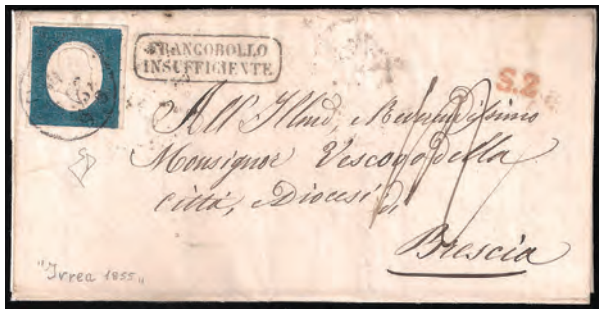 FRANCOBOLLO
INSUFFICIENTE
S.2
All' Illmo,
Monsignor Vescovo della
Città, Diocesi di
Brescia
"Ivrea 1855"